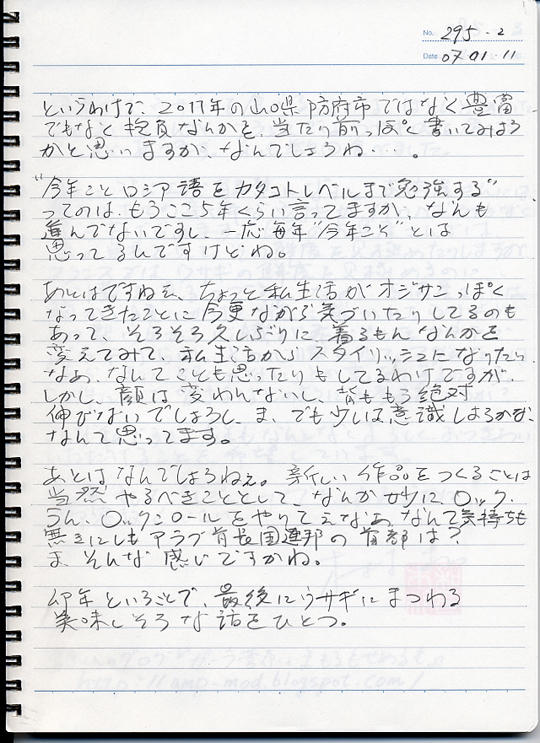 No. 295-2
Date 07.01.11
というわけで、2011年の山口県防府市ではなく豊富
でもなく抱負なんかを、当たり前っぽく書いてみようか
かと思いますが、なんでしょうね…。
"今年こそロシア語をカタコトレベルまで勉強する"
ってのは、もうここ5年くらい言ってますが、なんも
進んでないですし、一応毎年"今年こそ"とは
思ってるんですけどね。
あとはですねぇ、ちょっと私生活がオジサンっぽく
なってきたことに今更ながら気づいたりしてるのも
あって、そろそろ久しぶりに着るもんなんかを
変えてみて、私生活からスタイリッシュになりたい
なぁ、なんてことも思ったりもしてるわけですが、
しかし、顔は変わんないし、背ももう絶対
伸びないでしょうし、ま、でも少しは意識しようかな、
なんて思ってます。
あとはなんでしょうねぇ。新しい作品をつくることは
当然やるべきこととして、なんか妙にロック、
うん、ロックンロールをやりてえなぁ、なんて気持ちも
無きにしもアラブ首長国連邦の首都は?
ま、そんな感じですかね。
卯年ということで、最後にウサギにまつわる
美味しそうな話をひとつ。
http://amp-mod.blogspot.com/